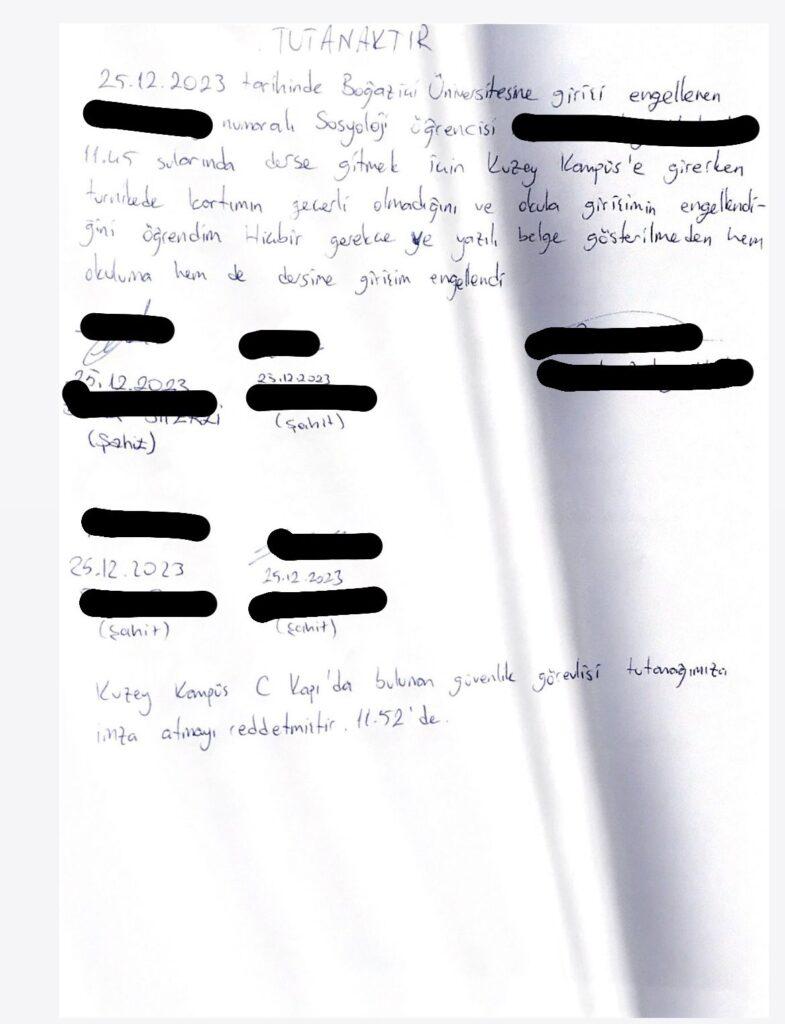 TUTANAKTIR
25.12.2023 tarihinde Boğaziçi Üniversitesine girişi engellenen
numaralı Sosyoloji öğrencisi
11.45 sularında derse gitmek için Kuzey Kampüs'e girerken
turnikede kartımın geçerli olmadığını ve okula girişimin engellendi-
ğini öğrendim Hiçbir gerekçe ve yazılı belge gösterilmeden hem
okuluma hem de dersime girişim engellendi
25.12.2023
(Şahit)
25.12.2023
(Şahit)
25.12.2023
(Şahit)
25.12.2023
(Şahit)
Kuzey Kampüs C Kapı'da bulunan güvenlik görevlisi tutanağımıza
imza atmayı reddetmiştir. 11.52'de.